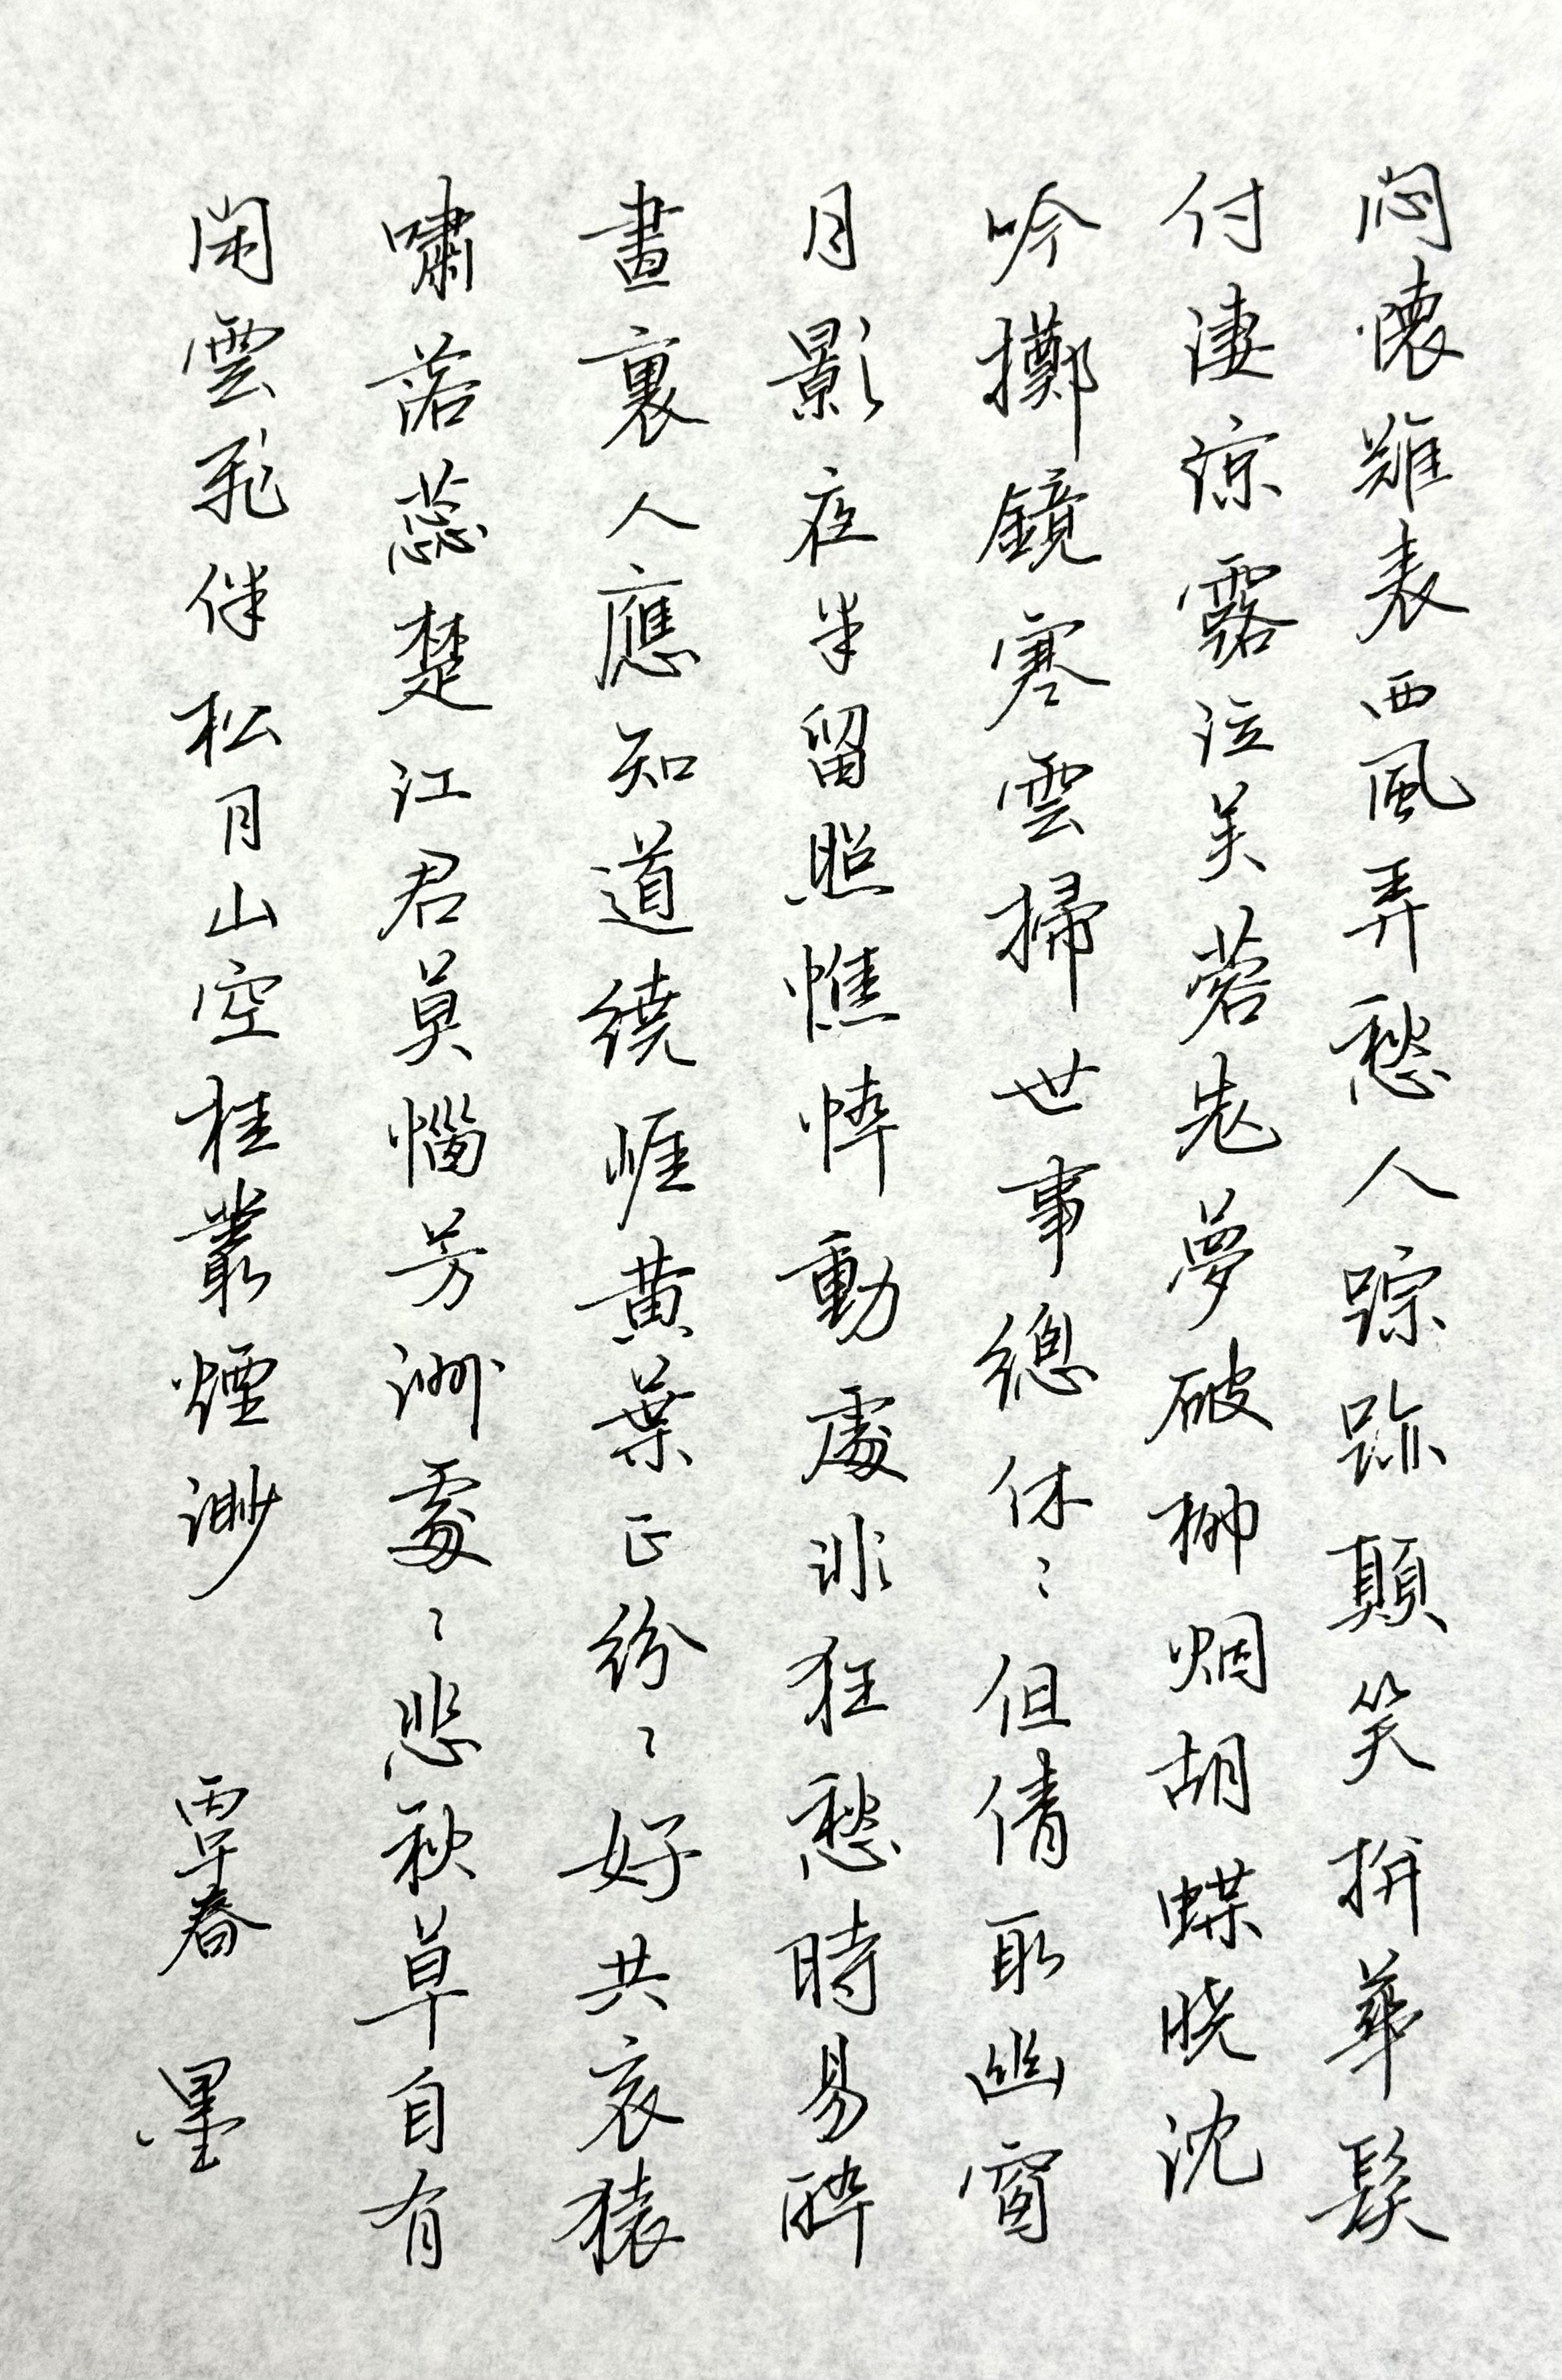 闷懷難表西風弄愁人踪跡顛笑拚華髮
付淒涼露泣芙蓉老夢破柳烟胡蝶曉沈
吟擲鏡寒雲掃世事總休〻但倩取幽窗
月影夜半留照憔悴動處非狂愁時易醉
畫裏人應知道繞崕黄葉正紛〻好共哀猿
嘯落蕊楚江君莫惱芳洲處〻悲秋草自有
闲雲飛伴松月山空桂叢煙渺 覃春 墨